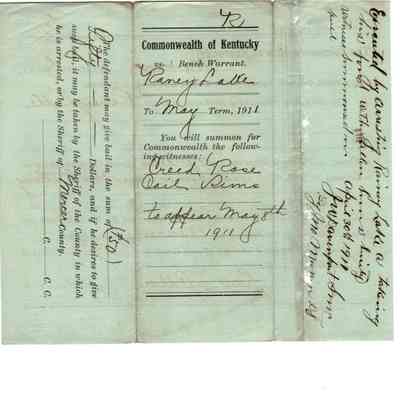 The defendant may give bail in the sum of
Fifty Dollars, ($50)
and if he desires to give
such bail, it may be taken by the Sheriff of the County in which
he is arrested, or by the Sheriff of Mercer County.
C. C. C.
R
Commonwealth of Kentucky
vs. Bench Warrant.
Raney Lake
To May Term, 1911
You will summon for
Commonwealth the follow-
ing witnesses:
Creed Rose
Cail Sims
to appear May 8th
1911
Executed by arresting Rainey Lake & taking
this for
Witness summoned
April 30th 1911